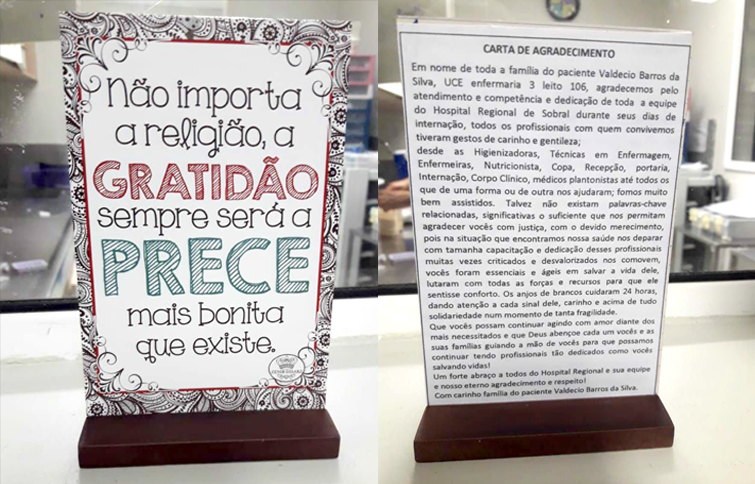 Não importa
a religião, a
GRATIDÃO
sempre será a
PRECE
mais bonita
que existe.
CARTA DE AGRADECIMENTO
Em nome de toda a família do paciente Valdecio Barros da
Silva, UCE enfermaria 3 leito 106, agradecemos pelo
atendimento e competência e dedicação de toda a equipe
do Hospital Regional de Sobral durante seus dias de
internação, todos os profissionais com quem convivemos
tiveram gestos de carinho e gentileza;
desde as Higienizadoras, Técnicas em Enfermagem,
Enfermeiras, Nutricionista, Copa, Recepção, portaria,
Internação, Corpo Clínico, médicos plantonistas até todos os
que de uma forma ou de outra nos ajudaram; fomos muito
bem assistidos. Talvez não existam palavras-chave
relacionadas, significativas o suficiente que nos permitam
agradecer vocês com justiça, com o devido merecimento,
pois na situação que encontramos nossa saúde nos deparar
com tamanha capacitação e dedicação desses profissionais
muitas vezes criticados e desvalorizados nos comovem,
vocês foram essenciais e ágeis em salvar a vida dele,
lutaram com todas as forças e recursos para que ele
sentisse conforto. Os anjos de brancos cuidaram 24 horas,
dando atenção a cada sinal dele, carinho e acima de tudo
solidariedade num momento de tanta fragilidade.
Que vocês possam continuar agindo com amor diante dos
mais necessitados e que Deus abençoe cada um vocês e as
suas famílias guiando a mão de vocês para que possamos
continuar tendo profissionais tão dedicados como vocês
salvando vidas!
Um forte abraço a todos do Hospital Regional e sua equipe
e nosso eterno agradecimento e respeito!
Com carinho família do paciente Valdecio Barros da Silva.